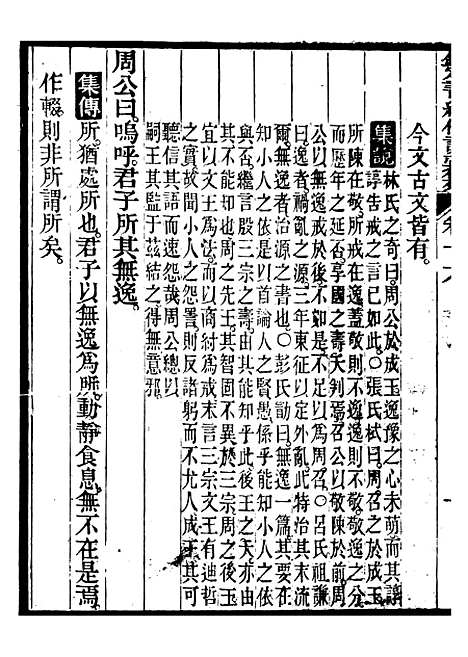 今文古文皆有。
集說 林氏之奇曰。周公於成王。逸豫之心未萌。而其諄
諄告戒之言已如此。○張氏栻曰。周公之於成王。
所陳在敬。所戒在逸。蓋敬則不逸。逸則不敬。敬逸之分。
而歷年之延否。享國之壽夭判焉。召公以敬陳於前。周
公以逸戒於後。不如是。不足以爲周召。○呂氏祖謙
曰。逸者禍亂之源。三年東征。以定外亂。此特治其末流
爾。無逸者治源之書也。○彭氏勖曰。無逸一篇。其要在
知小人之依。是以首論人之賢愚係乎能知小人之依
與否。繼言殷三宗之壽。由其能知乎此。後王之夭亦由
其不能知也。周之先王。其智固不異於三宗。周之後王
宜以文王爲法。而以商紂爲戒。末言三宗文王由迪哲
之實。故小人之怨詈。則反諸躬。而不尤人。成王其可
聽信其語。而速怨哉。周公總以
嗣王其監于茲結之。得無意邪
周公曰。嗚呼。君子所其無逸。
集傳 所。猶處所也。君子以無逸爲所。動靜食息。無不在是焉。
作輟。則非所謂所矣。